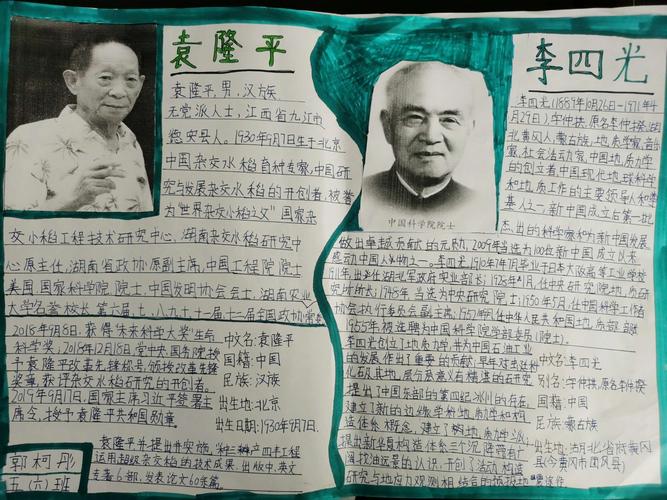 袁隆平
袁隆平,男,汉族
无党派人士,江西省九江市
德安县人。1930年9月7日生于北京
中国杂交水稻育种专家,中国研
究与发展杂交水稻的开创者,被誉
为"世界杂交水稻之父"国家杂
交水稻工程技术研究中心、湖南杂交水稻研究中
心原主任,湖南省政协原副主席,中国工程院院士
美国国家科学院院士,中国发明协会会士,湖南农业
大学名誉校长,第六届七、八九十十一届十二届全国政协常委
2018年9月8日,获得"未来科学大奖"生命
科学奖;2018年12月18日,党中央、国务院授
予袁隆平改革先锋称号,颁授改革先锋
奖章,获评杂交水稻研究的开创者。
2019年9月17日,国家主席习近平签署主
席令,授予袁隆平共和国勋章。
中文名:袁隆平
国籍:中国
民族:汉族
出生地:北京
出生日期:1930年9月7日
袁隆平并提出并实施"种三产四丰工程
运用超级杂交稻的技术成果 出版中、英文
专著6部,发表论文60余篇
郭柯彤
五(六)班
李四光
李四光(1889年10月26日—1971年4
月29日)字仲拱,原名李仲揆,湖
北黄冈人,蒙古族,地质学家、音
家、社会活动家,中国地质力学
的创立者、中国现代地球科学
和地质工作的主要领导人和奠
基人之一,新中国成立后第一批
杰出的科学家和为新中国发展
中国科学院院士
做出卓越贡献的元勋,2009年当选为100位新中国成立以来
感动中国人物之一。李四光,1910年7月毕业于日本大阪高等工业学校
1911年,出任湖北军政府实业部长;1928年1月,任中央研究院地质研
究所所长;1948年当选为中央研究院院士;1950年5月,任中国科学工作者
协会执行委员会副主席;1952年9月任中华人民共和国地质部部长
1955年被选聘为中国科学院学部委员(院士)。
李四光创立了地质力学,并为中国石油工业
的发展作出了重要的贡献,早年对蜓
化石及其地层分系意义有精湛的研究
提出了中国东部的第四纪冰川的存在,
建立了新的边缘学科地质力学和构
造体系概念,
提出新华夏构造体系三个沉降带有广
阔找油远景的认识,开创了活动构造
研究与地应力观测相结合的预报地震途径
中文名:李四光
别名:字仲拱,原名李仲揆
国籍:中国
民族:蒙古族
出生地:湖北省黄冈
县(今黄冈市团风县)